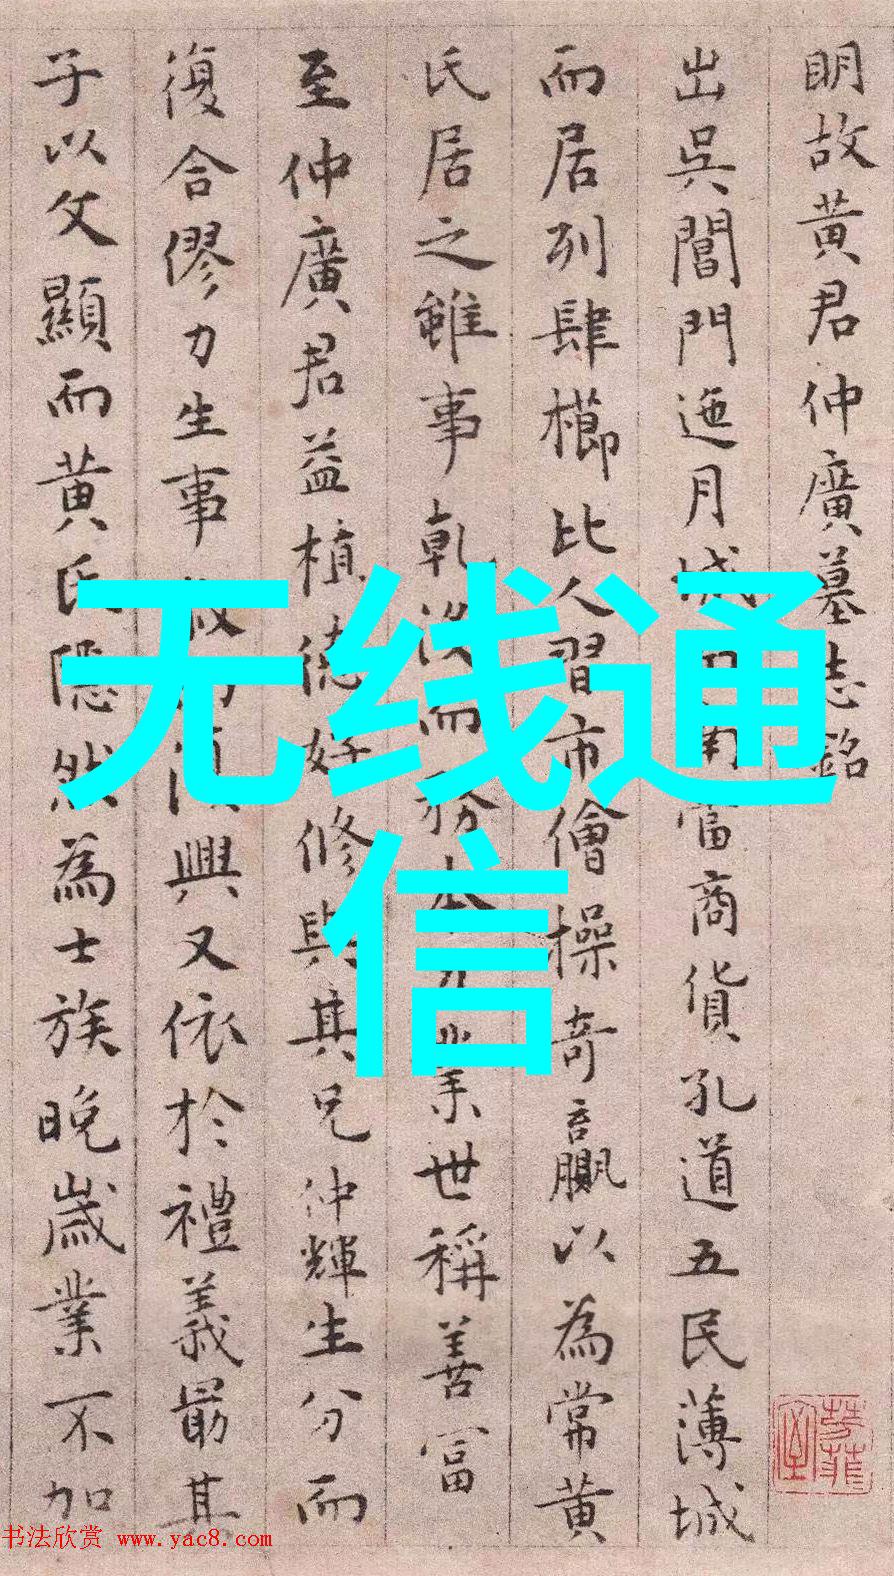 明故黄君仲廣墓志銘
出吳閶門迤月城南當商貨孔道五民薄城
而居列肆櫛比人習市儈操奇贏以為常黄
氏居之雖事乾没而務本業世稱善富
至仲廣君益植德好修與其兄仲輝生分而
復合僇力生事興又依於禮義最其
子以文顯而黄氏隱然為士族晚歲業不加
无线通
信
书法欣赏 www.yac8.com